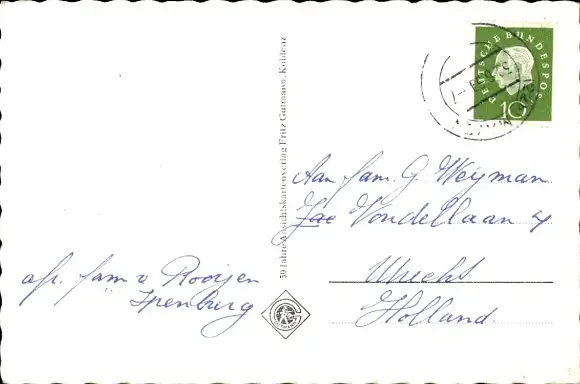 DEUTSCHE BUNDESPOST
10
50 Jahre Ansichtskartenverlag Fritz Gutmann, Koblenz
Aan fam. G Weyman
Vondellaan 4
Utrecht
Holland.
afz. fam v Rooijen
Ypenburg